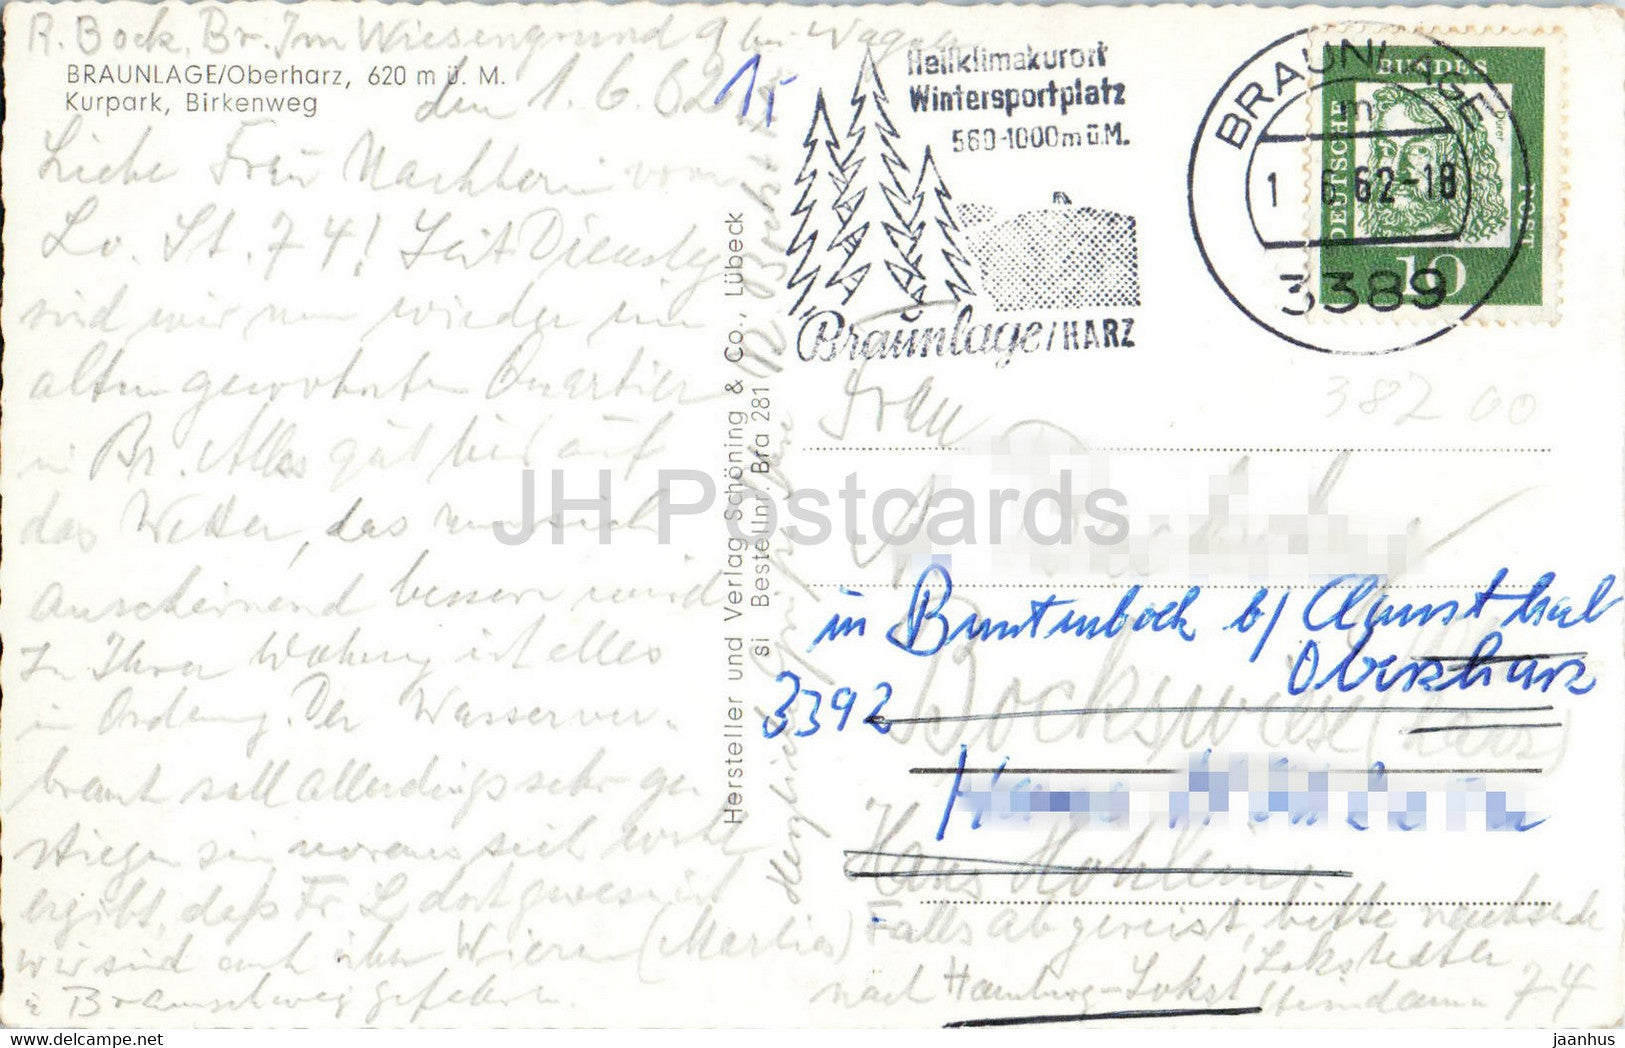 R. Bock, Br. Im Wiesengrund 9 bei
BRAUNLAGE/Oberharz, 620 m ü. M.
Kurpark, Birkenweg
den 1. 6. 62
Liebe Frau Nachberin vom
Lo. St. 74! Seit Dienstag
sind wir nun wieder im
alten gewohnten Quartier
in Br. Alles gut bis auf
das Wetter, das nun sich
anscheinend bessern wird
In Ihrer Wohnung ist alles
in Ordnung. Der Wasserver-
brauch soll allerdings sehr ge
stiegen sein woraus sich wohl
ergibt, daß Fr. L. dort gewesen ist
wir sind auch über Wieren (Marlies)
n Braunschweig gefahren.
Hersteller und Verlag Schöning & Co., Lübeck
si Bestellnr. Bra 281
Herzliche Grüße
15
Heilklimakurort
Wintersportplatz
560-1000m ü.M.
Braunlage/HARZ
BRAUNLAGE
m
1. 6. 62-18
3389
DEUTSCHE BUNDESPOST
Dürer
10
382 00
Frau
in Buntenbock b/ Clausthal
Oberharz
3392
Bockswiese (Harz)
Haus
Haus Hohlem
Falls abgereist, bitte nachsende
nach Hamburg-Lokst Lokstedter
Steindamm 74
JH Postcards
www.delcampe.net
jaanhus